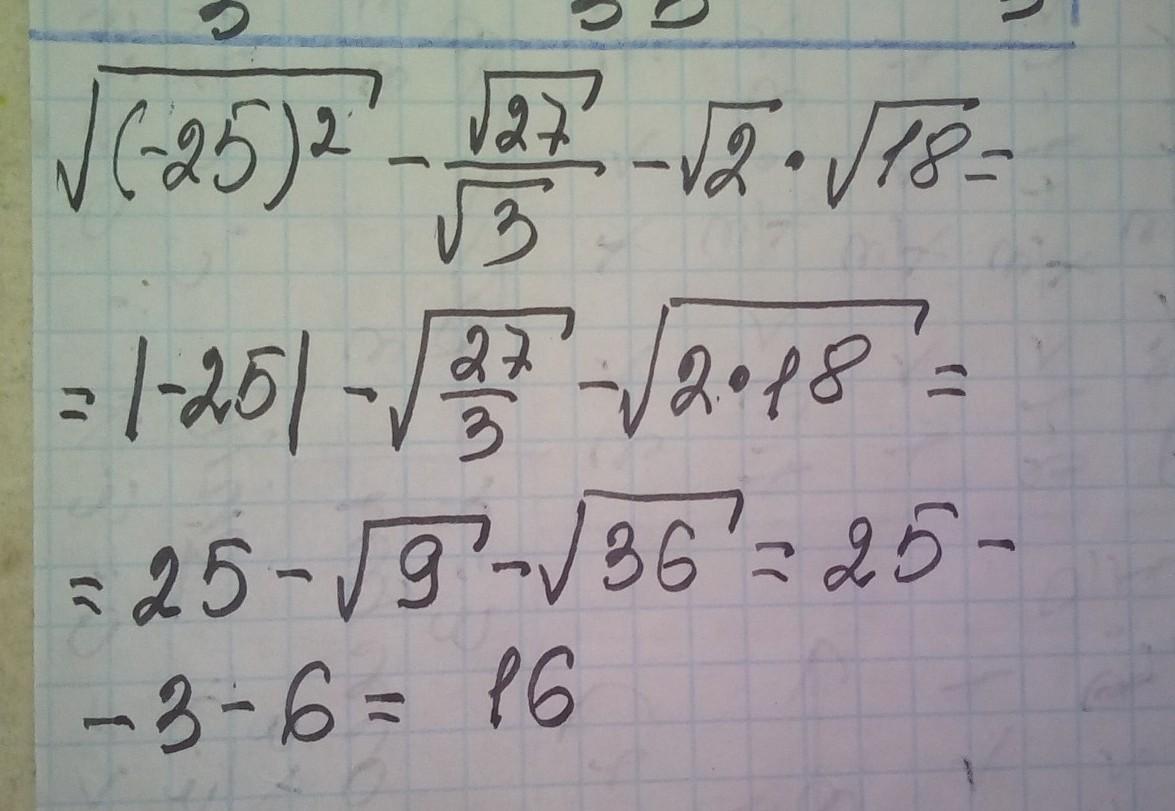 √(-25)² - √27/√3 - √2 · √18 =
= |-25| - √(27/3) - √(2·18) =
= 25 - √9 - √36 = 25 -
- 3 - 6 = 16